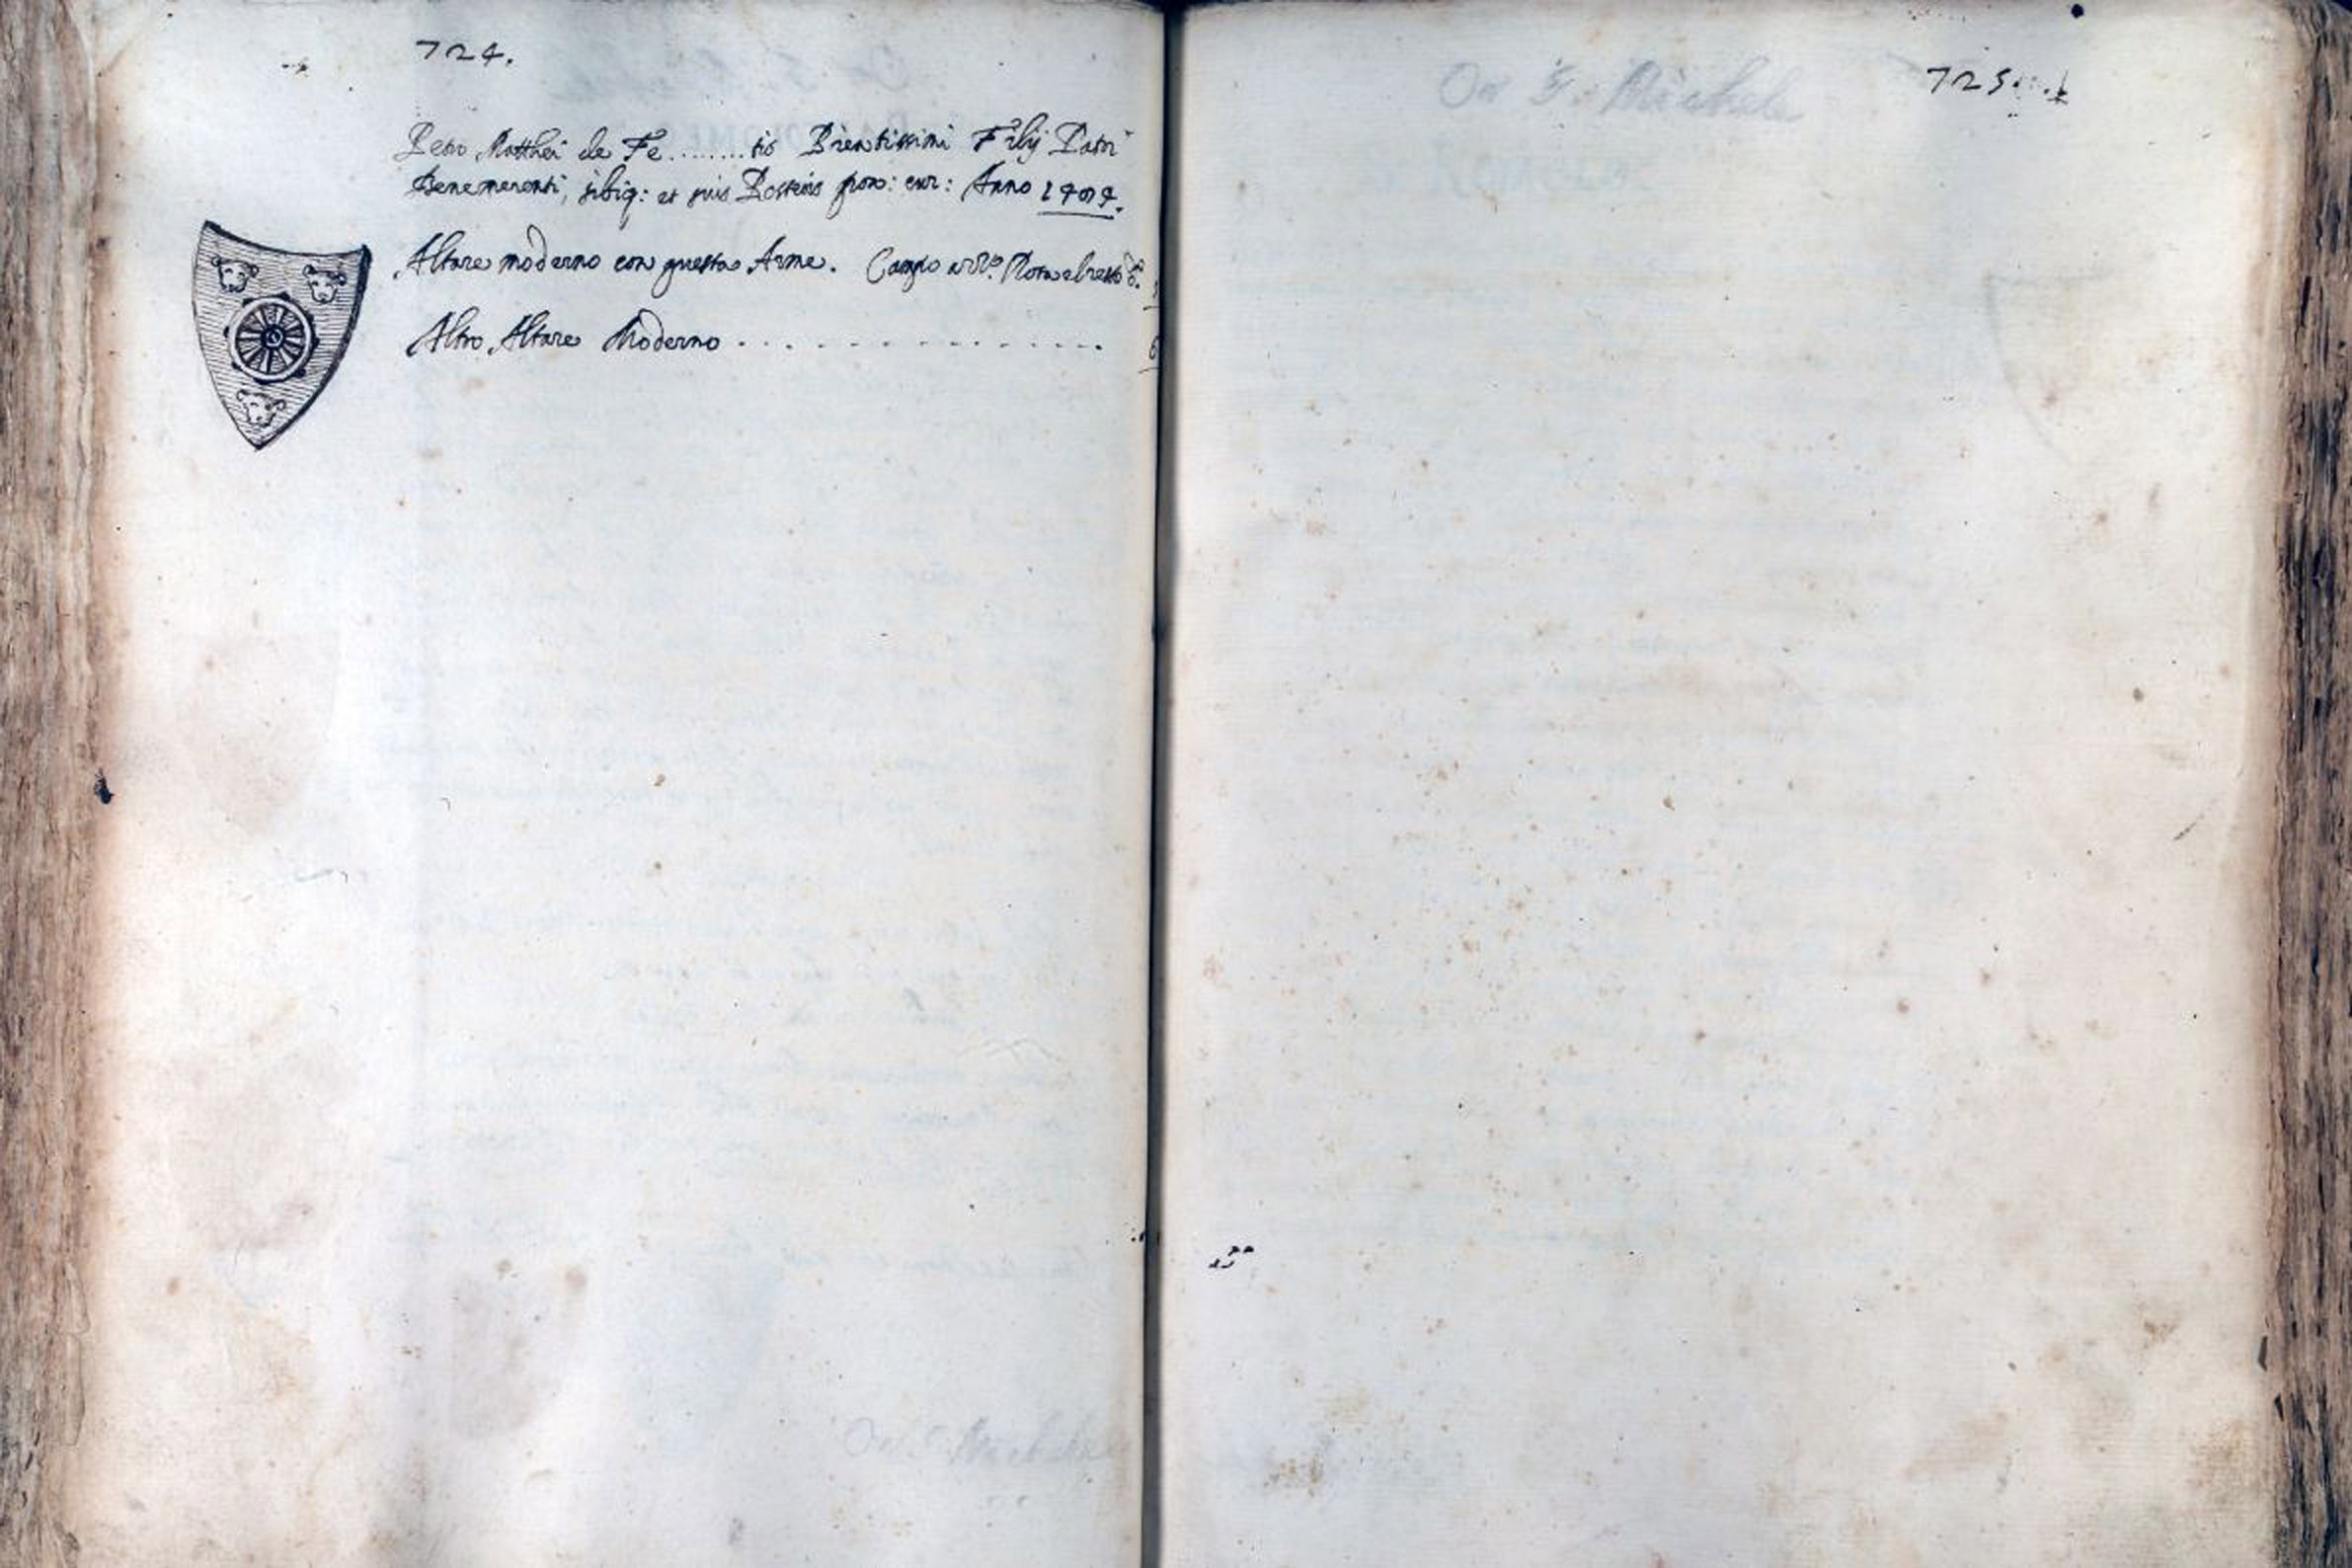 724.
Petro Matthei de Fe........tis Prentissimi Filij Patri
Benemerenti, sibiq: et suis Posteris pon: cur: Anno 1404.
Altare moderno con questa Arme. Campo
Altro Altare Moderno . . . . . . . . . . . . . . .
725.
Or S. Michele
Or S. Michele